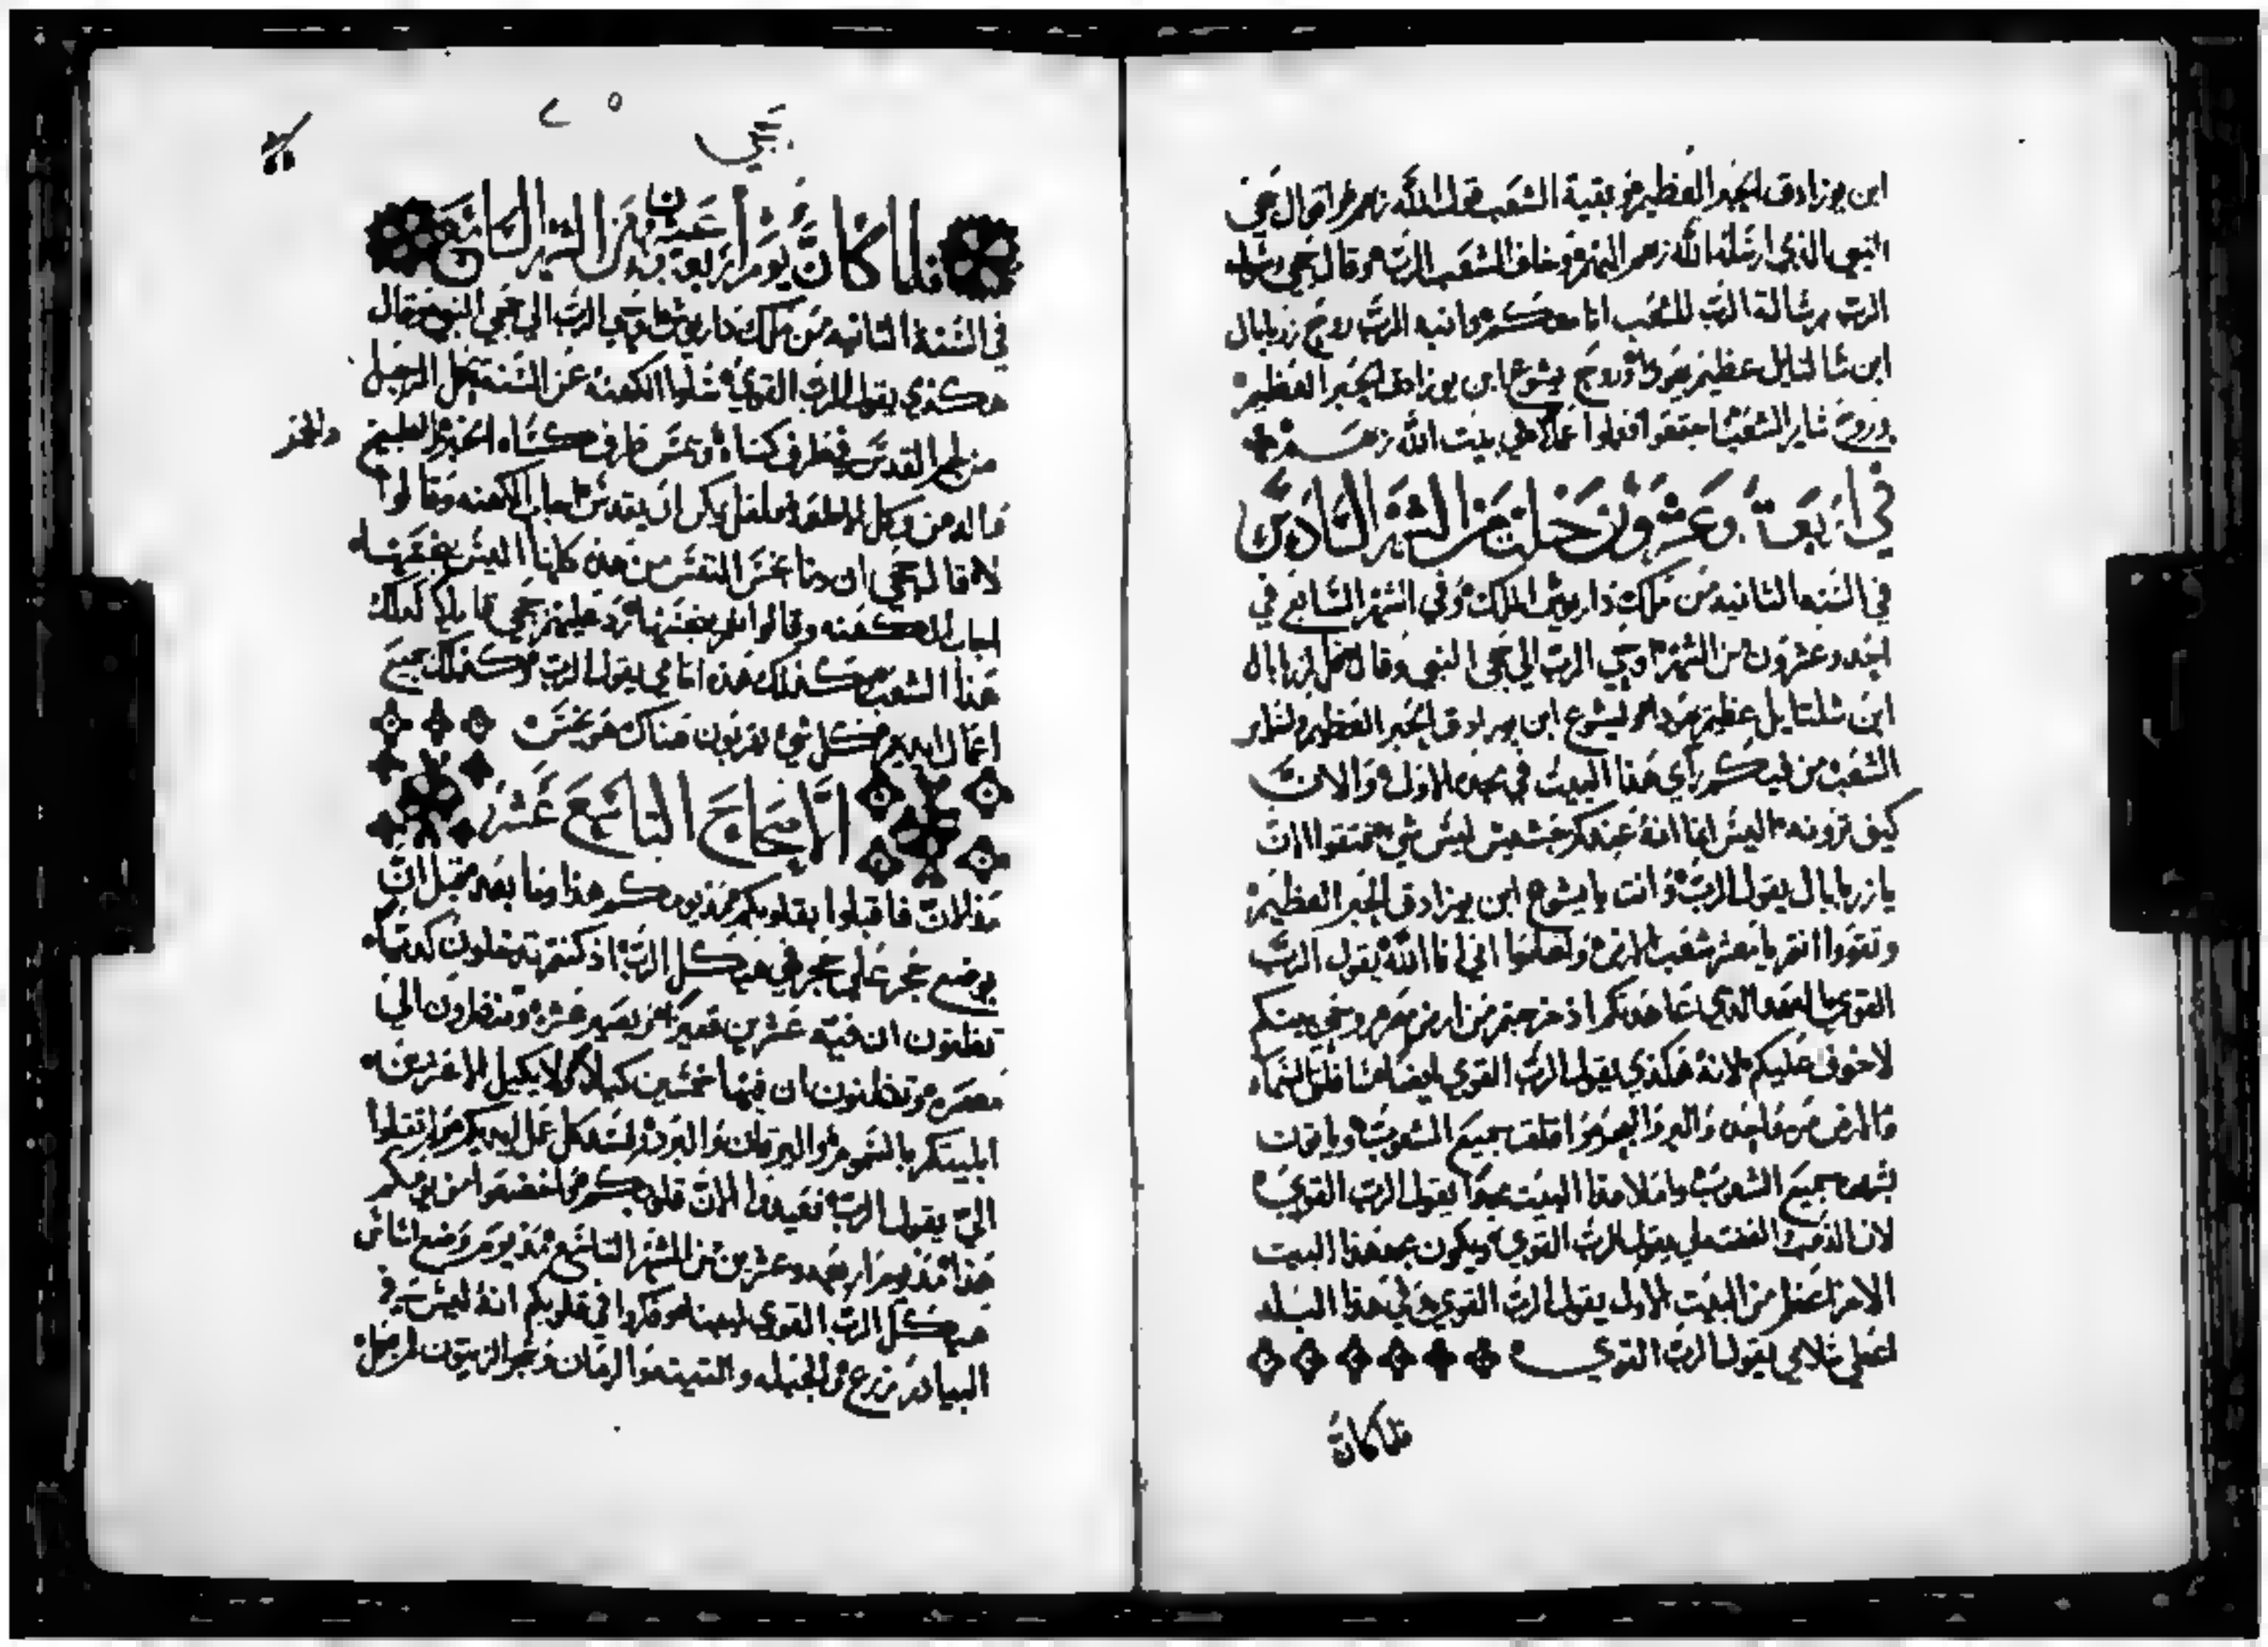 ابن يوزادق الحبر العظيم وبقية الشعب قول الله ربهم واقوال حجي
النبي الذي ارسله الله ربهم اليهم وخاف الشعب الرب وقال حجي رسول
الرب برسالة الرب للشعب انا معكم وانبه الرب روح زربابال
ابن شالتايل عظيم يهودا وروح يشوع ابن يوزادق الحبر العظيم
وروح ساير الشعب اجتمعوا فعلوا عملا في بيت الله ربهم
في اربعة وعشرون خلت من الشهر السادس
في السنه الثانيه من ملك داريوش الملك وفي الشهر السابع في
احد وعشرون من الشهر اوحي الرب الي حجي النبي وقال قل لزربابال
ابن شلتايل عظيم يهودا وليشوع ابن يوزادق الحبر العظيم ولساير
الشعب من فيكم راي هذا البيت في مجده الاول والان
كيف ترونه اليس انما انه عندكم ليس شي تقووا الان
يا زربابال يقول الرب وانت يا يشوع ابن يوزادق الحبر العظيم
وتقووا انتم يا معشر شعب الارض واعملوا اني انا الله يقول الرب
القوي بالعهد الذي عاهدتكم اذ خرجتم من ارض مصر وروحي بينكم
لا خوف عليكم لانه هكذي يقول الرب القوي ايضا هنا اقلق السماء
والارض مره واحده والبر والبحر واقلق جميع الشعوب وياتون
بشهوه جميع الشعوب واملا هذا البيت مجدا يقول الرب القوي
لان الذهب الفضه لي يقول الرب القوي ويكون مجد هذا البيت
الاخر افضل من البيت الاول يقول الرب القوي وفي هذا البلد
اعطي سلامي يقول الرب القوي
فلما كان
حجي
فلما كان يوم اربعه وعشرون من الشهر التاسع
في السنة الثانيه من ملك داريوش اوحي الرب الي حجي النبي وقال
هكذي يقول الرب القوي سلوا الكهنه عن السنة يحمل الرجل
من لحم القدس في طرف كساه ويمس طرف كساه الخبز والطبيخ
والخمر
والدهن وكل الاطعمة فلعل يكن ان يقدس اجاب الكهنه وقالوا
لا قال حجي ان دنا نجس النفس من هذه كلها اليس ينجسها
اجاب الكهنه وقالوا ينجسها رد عليهم حجي قايلا كذلك
هذا الشعب وكذلك هذه امامي يقول الرب وكذلك جميع
اعمال ايديهم وكل شي يقربون هناك هو نجس
الاصحاح التاسع عشر
فالان فاقبلوا بقلوبكم منذ يومكم هذا وما بعد من قبل ان
يوضع حجر علي حجر في هيكل الرب اذ كنتم تدخلون كدسا
تظنون ان فيه عشرين قفيزا فيصير عشره وتدخلون الي
معصره وتظنون ان فيها خمسين كيلا ولا يكيل الا عشرين
ابليتكم بالسموم واليرقان والبرد وافسد كل عمل ايديكم ولم تقبلوا
الي يقول الرب فعيدوا الان قلوبكم واخضعوا من يومكم
هذا منذ يوم اربعه وعشرين من الشهر التاسع منذ يوم وضع اساس
هيكل الرب القوي فكروا في قلوبكم انه ليس في
البيادر زرع والحبله والتينه والرمان وشجر الزيتون لم يحمل